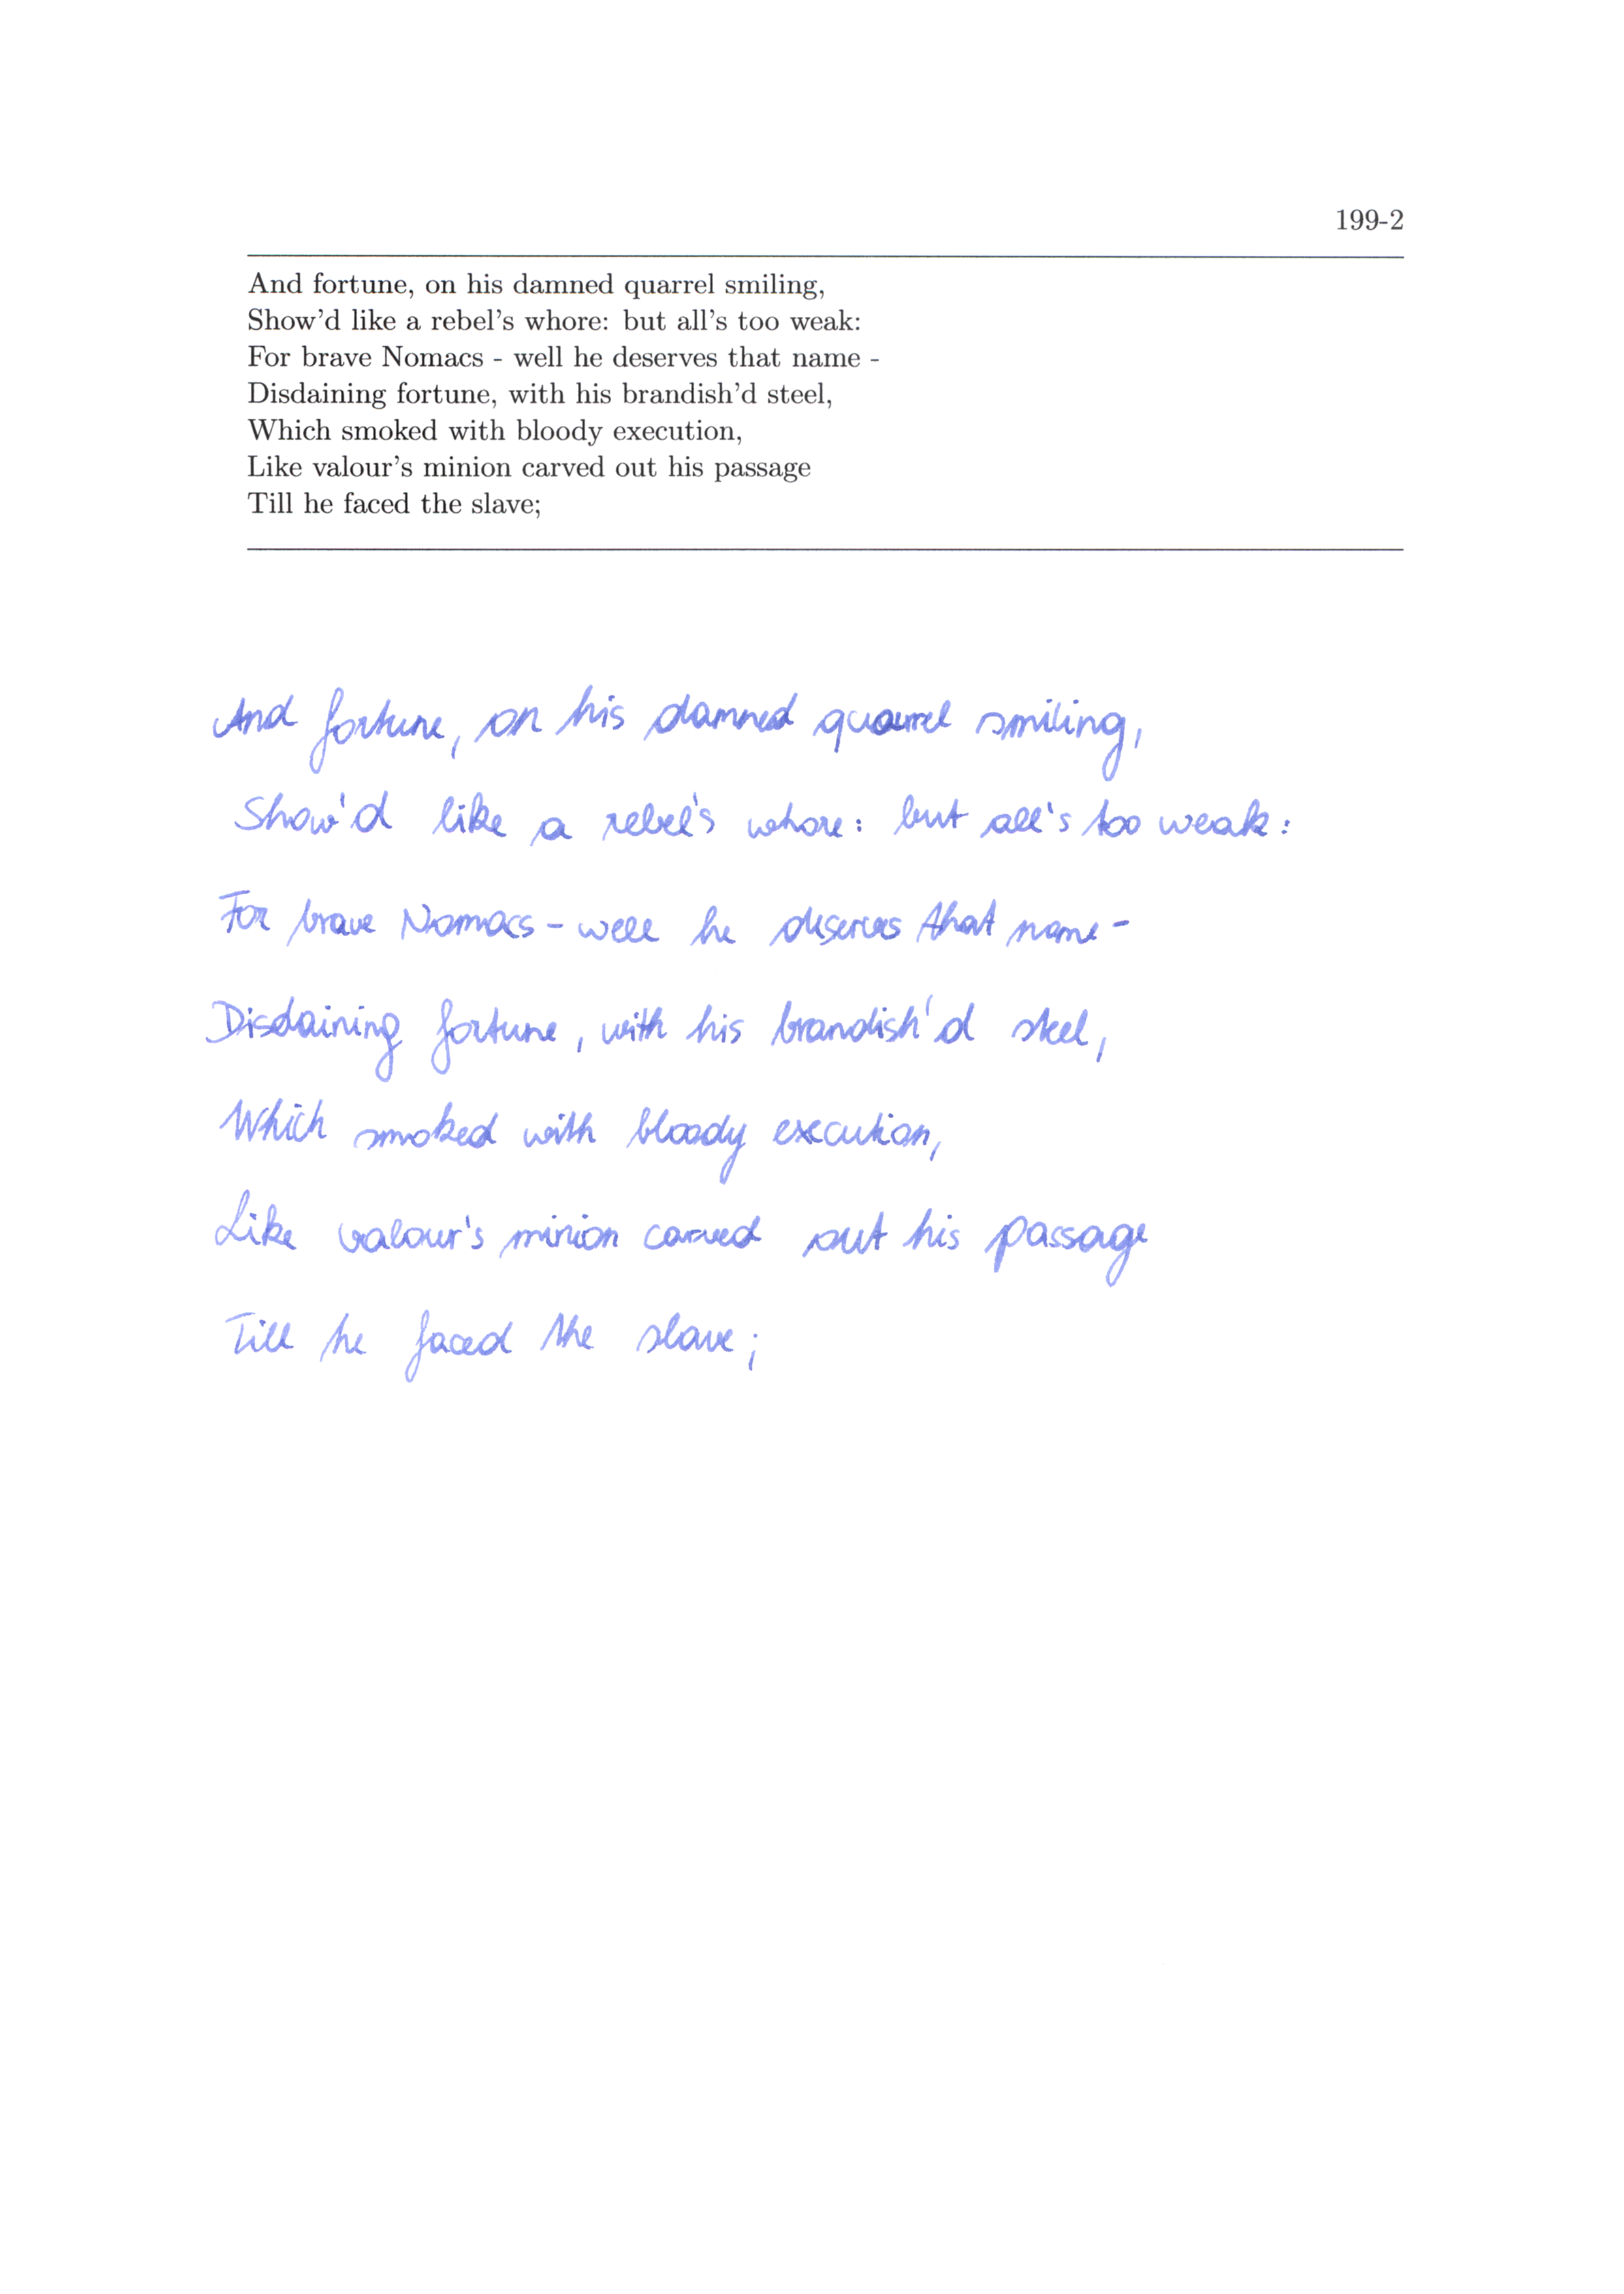 199-2
And fortune, on his damned quarrel smiling,
Show'd like a rebel's whore: but all's too weak:
For brave Nomacs - well he deserves that name -
Disdaining fortune, with his brandish'd steel,
Which smoked with bloody execution,
Like valour's minion carved out his passage
Till he faced the slave;
And fortune, on his damned quarrel smiling,
Show'd like a rebel's whore: but all's too weak:
For brave Nomacs - well he deserves that name -
Disdaining fortune, with his brandish'd steel,
Which smoked with bloody execution,
Like valour's minion carved out his passage
Till he faced the slave;